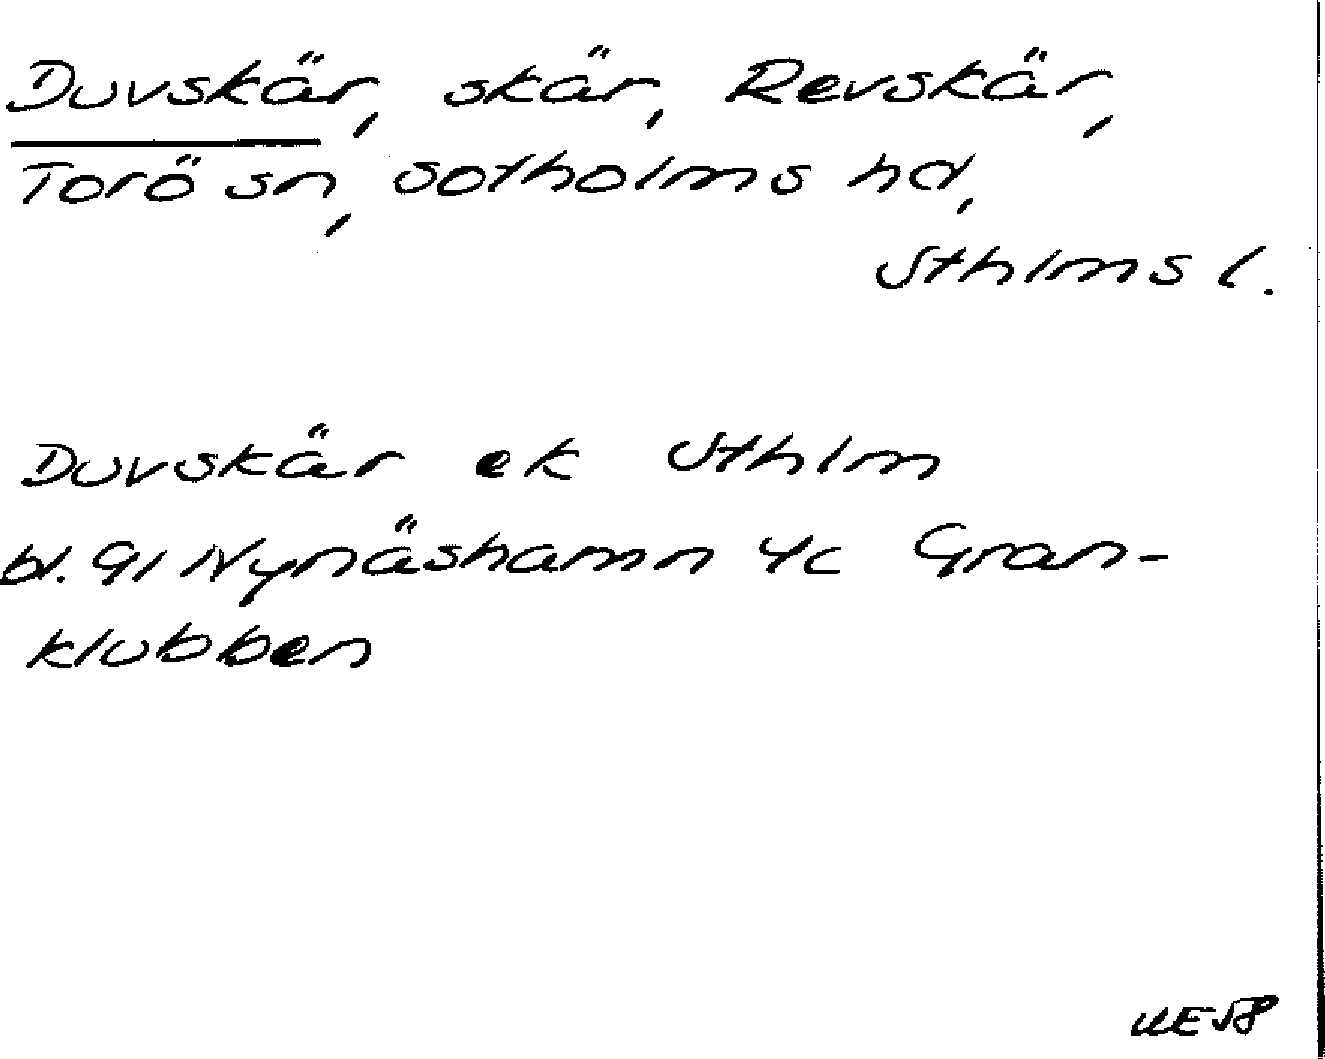 Duvskär, skär, Revskär,
Torö sn, Sotholms hd,
Sthlms l.
Duvskär ek Sthlm
bl. 91 Nynäshamn 4c Gran-
klubben